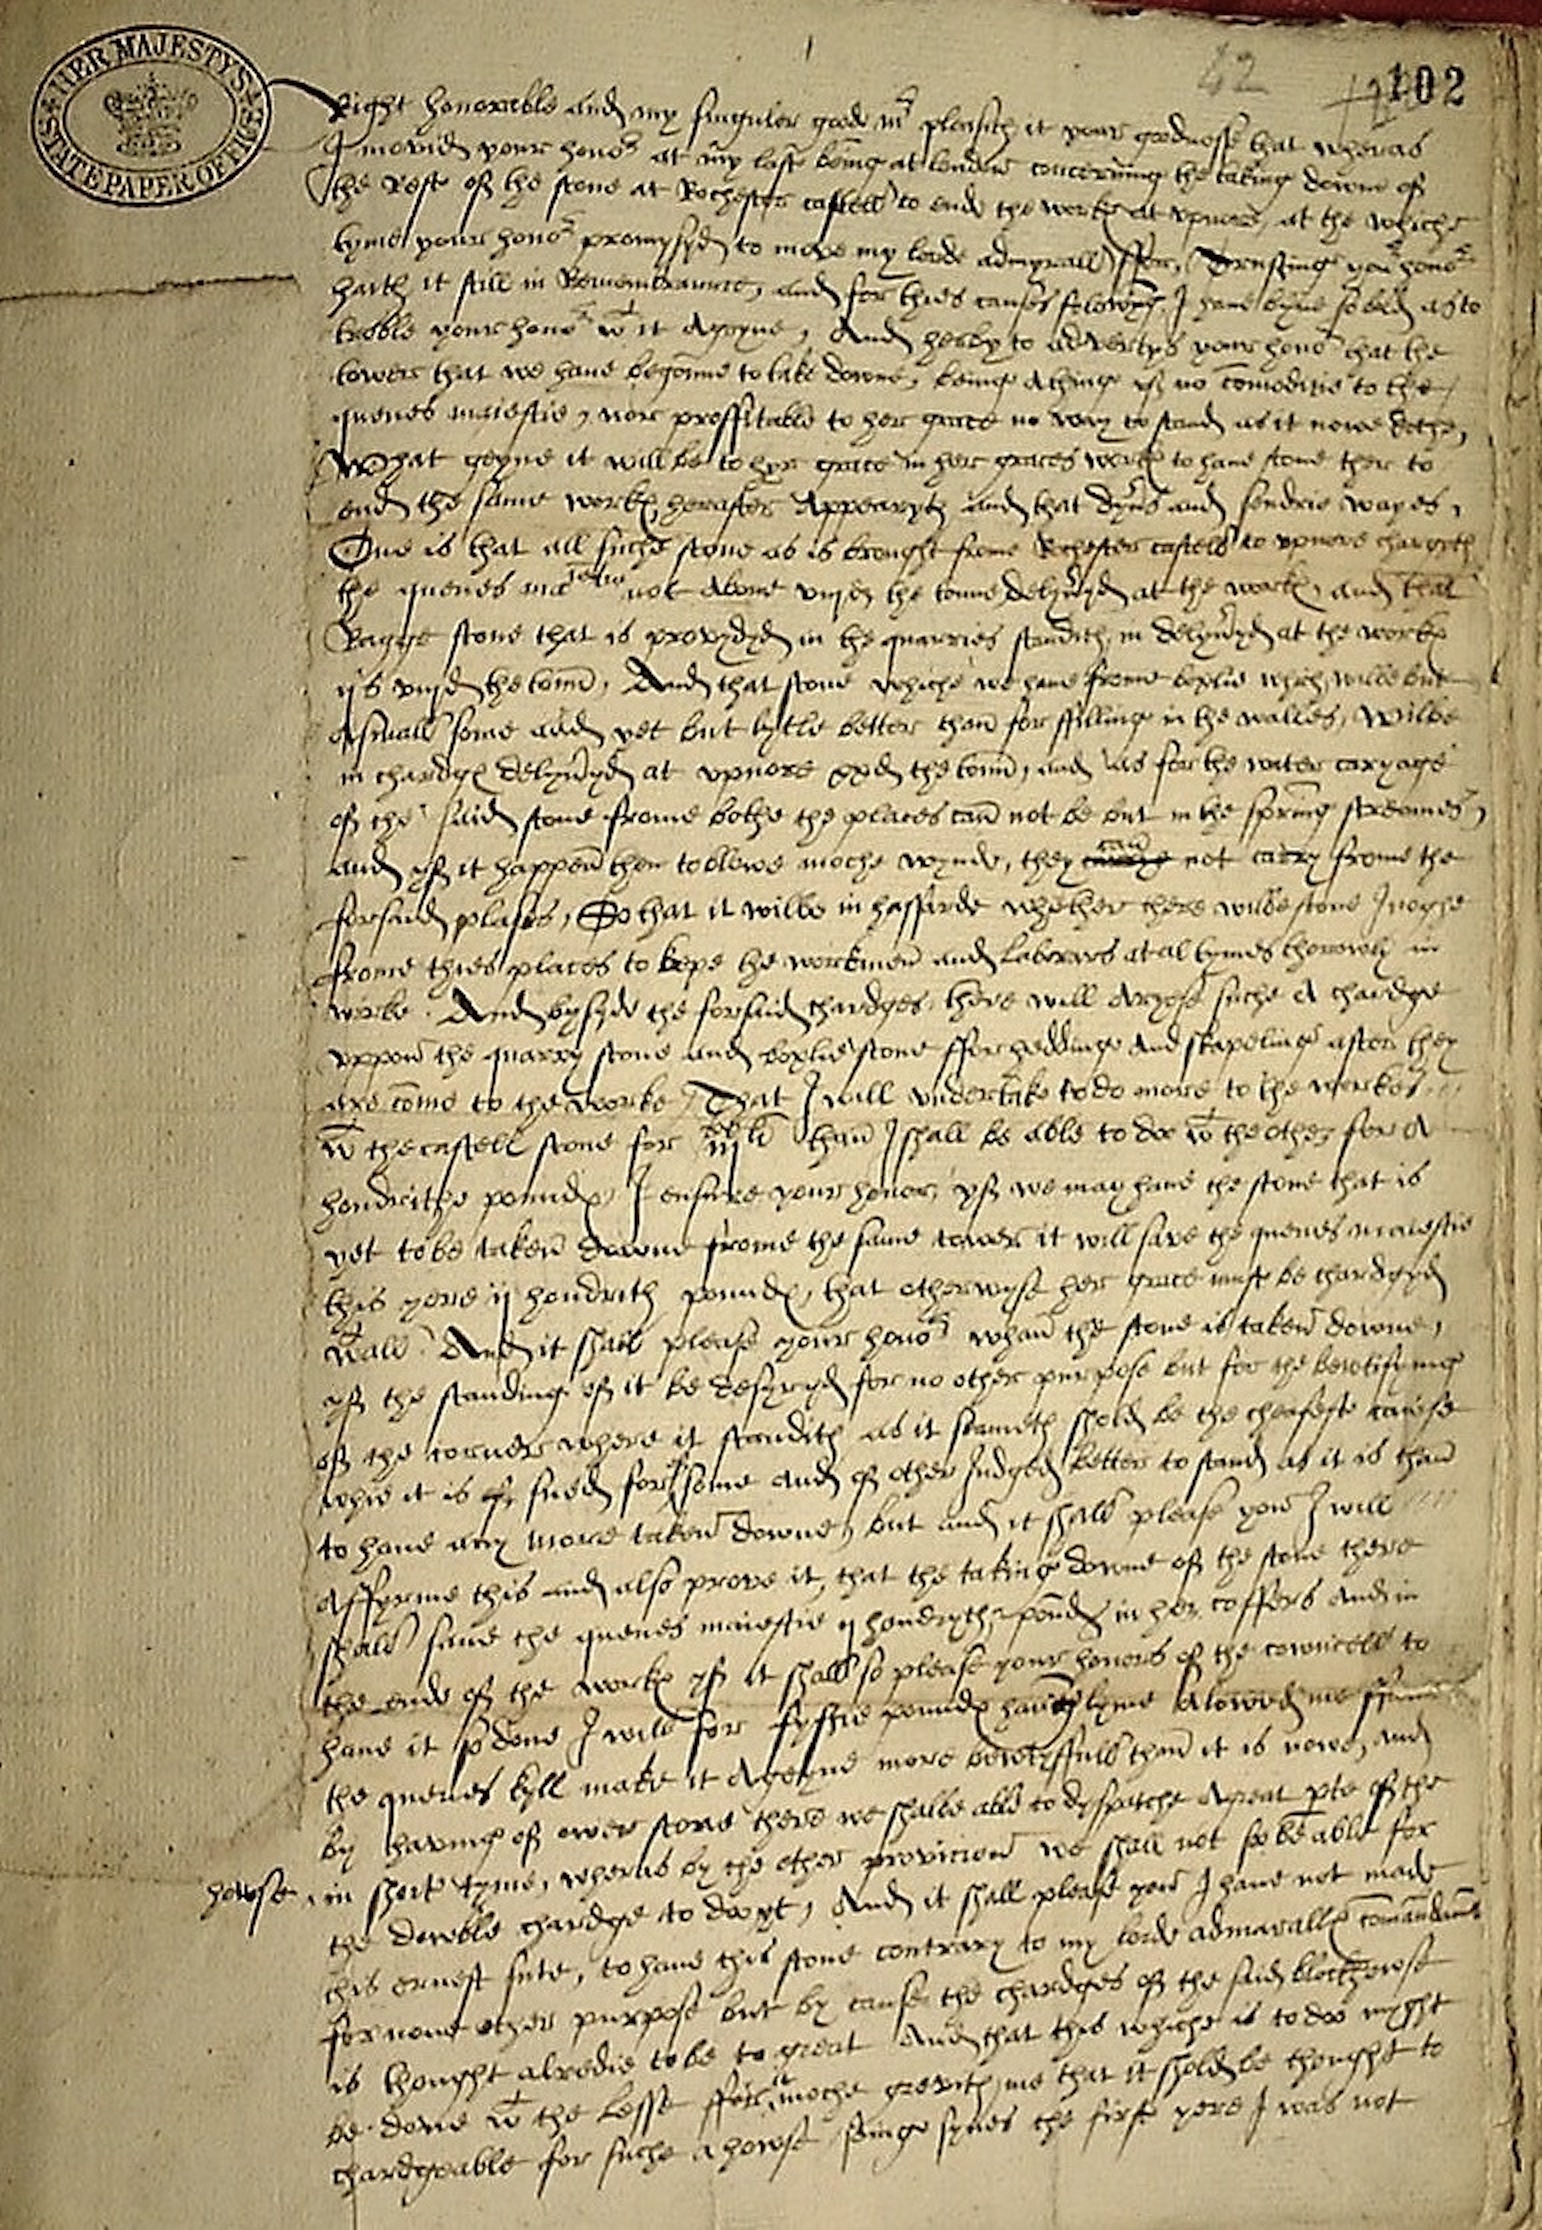 HER MAJESTY'S STATE PAPER OFFICE
42
102
Right honorable and my singuler good mr pleasith it your goodnesse that wheras
I movid your honor at my last being at london concerning the taking downe of
the Rest of the stone at Rochester castell to ende the workes at upnore, at the whiche
tyme your honor promysyd to move my lorde admyrall ffor, Trusting your honor
haith it still in Remembraunce, and for thies causes folowyng I have byne so bold as to
troble your honor wt it Agayne, And herby to advertys your honor that the
tower that we have begonne to take downe, being A thing of no comoditie to the
quenes maiestie, nor proffitable to her grace no way to stand as it nowe dothe,
What gayne it will be to hyr grace in her graces workes to have stone ther to
end the same workes herafter Appearyth and that dyvers and sondrie wayes,
One is that all suche stone as is brought frome Rochester castell to upnore chargyth
the quenes matie not above viijd the tonne delyveryd at the workes, and that
Ragge stone that is provydyd in the quarries standith in delyveryd at the workes
ijs viijd the tonne, And that stone whiche we have frome boxlie which wilbe but
A small some and yet but lytle better than for ffilling in the walles, wilbe
in chardges delyveryd at upnore xxd the tonne, and as for the water caryage
of the said stone frome bothe the places can not be but in the spring streames,
and yf it happen then to blowe moche wynde, they can not carry frome the
forsaid places, So that it wilbe in hassarde whether there wilbe stone Inoghe
frome thies places to kepe the workmen and laborers at al tymes thorowly in
worke. And bysyde the forsaid chardges, there will Aryse suche A chardge
uppon the quarry stone and boxlie stone ffor hedding And skapeling after they
are come to the worke, That I will undertake to do more to the workes
wt the castell stone for iijxx li than I shall be able to doo wt the other for A
hondrithe poundes, I ensure your honor, yf we may have the stone that is
yet to be taken downe frome the same tower it will save the quenes maiestie
this yere ij hondrith poundes, that otherwyse her grace must be chardgyd
wtall. And it shall please your honor whan the stone is taken downe,
yf the standing of it be desyryd for no other purpose but for the bewtifying
of the corner where it standith as it seameth shold be the cheafeste cause
whie it is sued for of some and of other Judged better to stand as it is than
to have any more taken downe, but and it shall please you I will
Affyrme this and also prove it, that the taking downe of the stone there
shall save the quenes maiestie ij hondryth poundes in her coffers and in
the ende of the workes yf it shall so please your honors of the cowncell to
have it so done I will for fyftie poundes having lyme Alowed me ffrome
the quenes kyll make it Ageyne more bewtyffull than it is nowe, and
by having of over stone there we shalbe able to dyspatche A great parte of the
howse, in short tyme, wheras by the other provicion we shall not so be able for
the dowble chardge to doo yt, And it shall please you I have not made
this ernest sute, to have this stone contrary to my lorde admyralles comandment
for none other purpose but by cause the chardges of the said blockhowse
is thought alredie to be to great And that this whiche is to doo might
be done wt the lesse ffor it moche grevith me that it shold be thought to
chardgeable for suche a howse, seing synes the first yere I was not